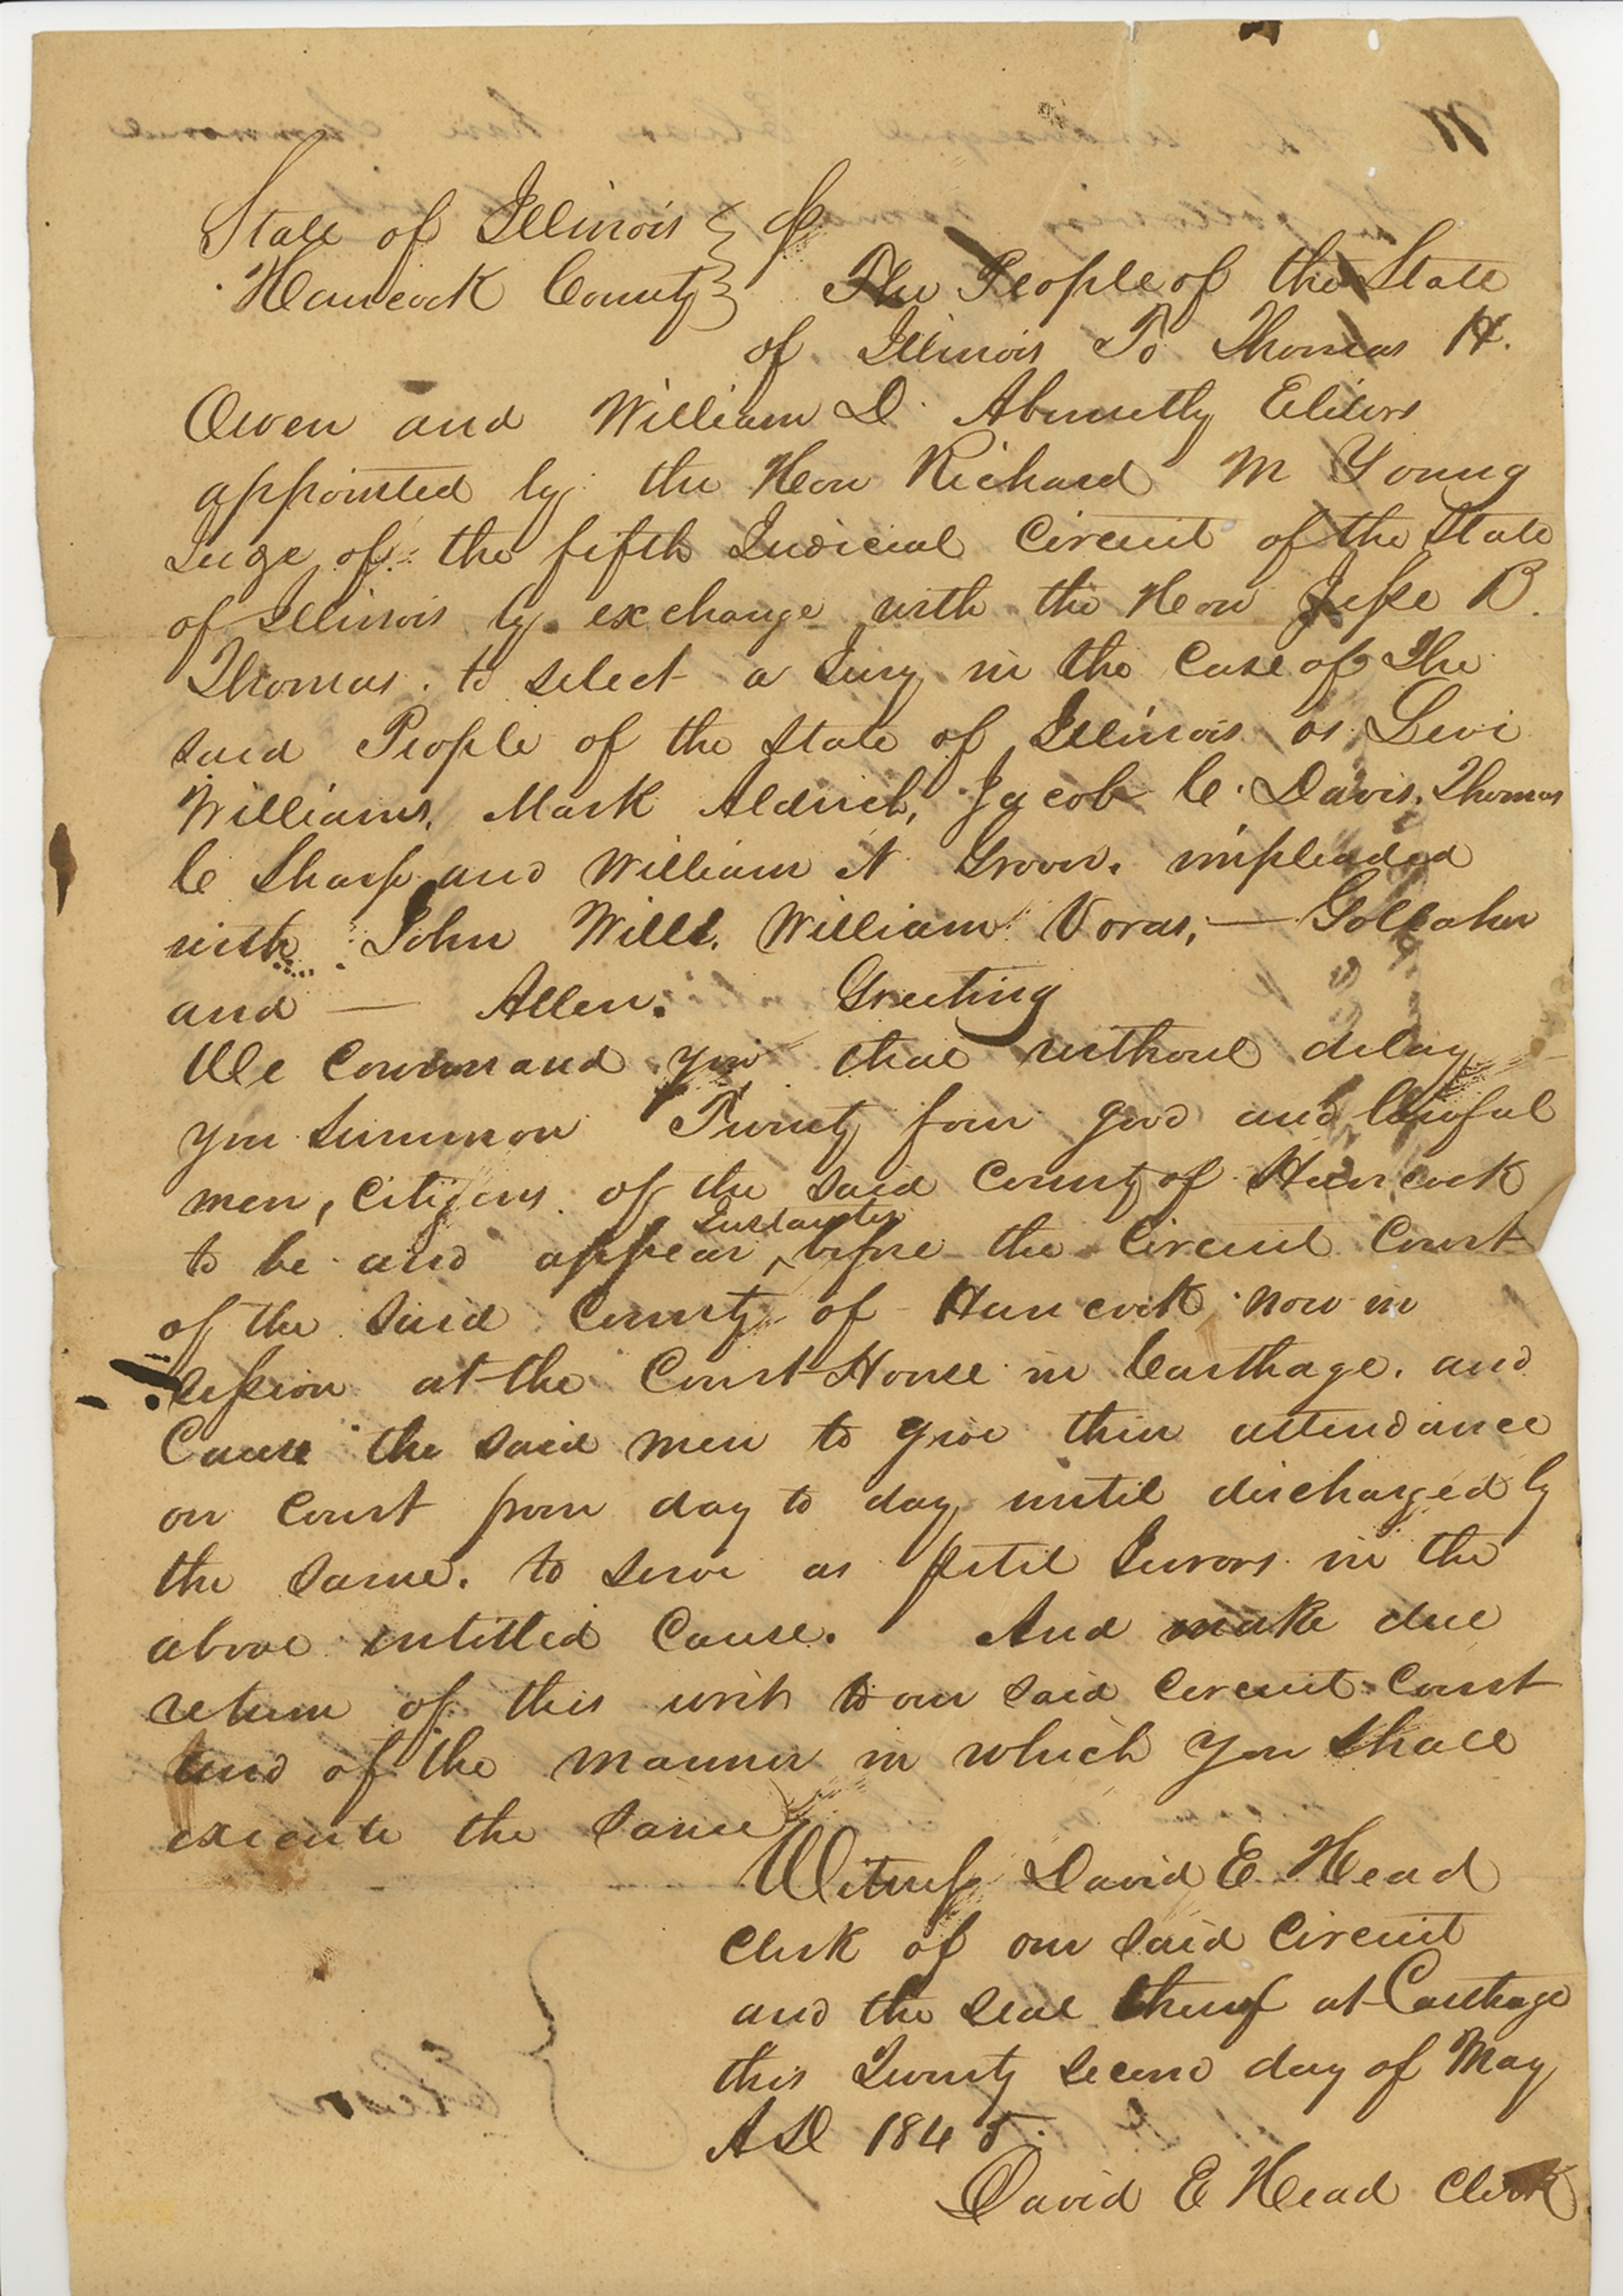 State of Illinois }
Hancock County } The People of the State
of Illinois To Thomas H.
Owen and William D. Abernethy Elisors
appointed by the Hon Richard M Young
Juge of the fifth Judicial Circuit of the State
of Illinois by exchange with the Hon Jesse B.
Thomas. to select a Jury in the Case of The
said People of the State of Illinois vs Levi
Williams, Mark Aldrich, Jacob C. Davis, Thomas
C Sharp and William N Grover. impleaded
with John Wills, William Voras, — Gollaher
and — Allen. Greeting
We Command you that without delay
you summon Twenty four good and lawful
men, Citizens of the said County of Hancock
to be and appear Instanter before the Circuit Court
of the said County of Hancock now in
session at the Court House in Carthage. and
Cause the said men to give their attendance
on Court from day to day until discharged by
the same. to serve as petit Jurors in the
above intitled Cause. And make due
return of this writ to our said Circuit Court
and of the manner in which you shall
execute the same
Witness David E Head
Clerk of our said Circuit
and the seal thereof at Carthage
this Twenty second day of May
AD 1845.
David E Head Clerk